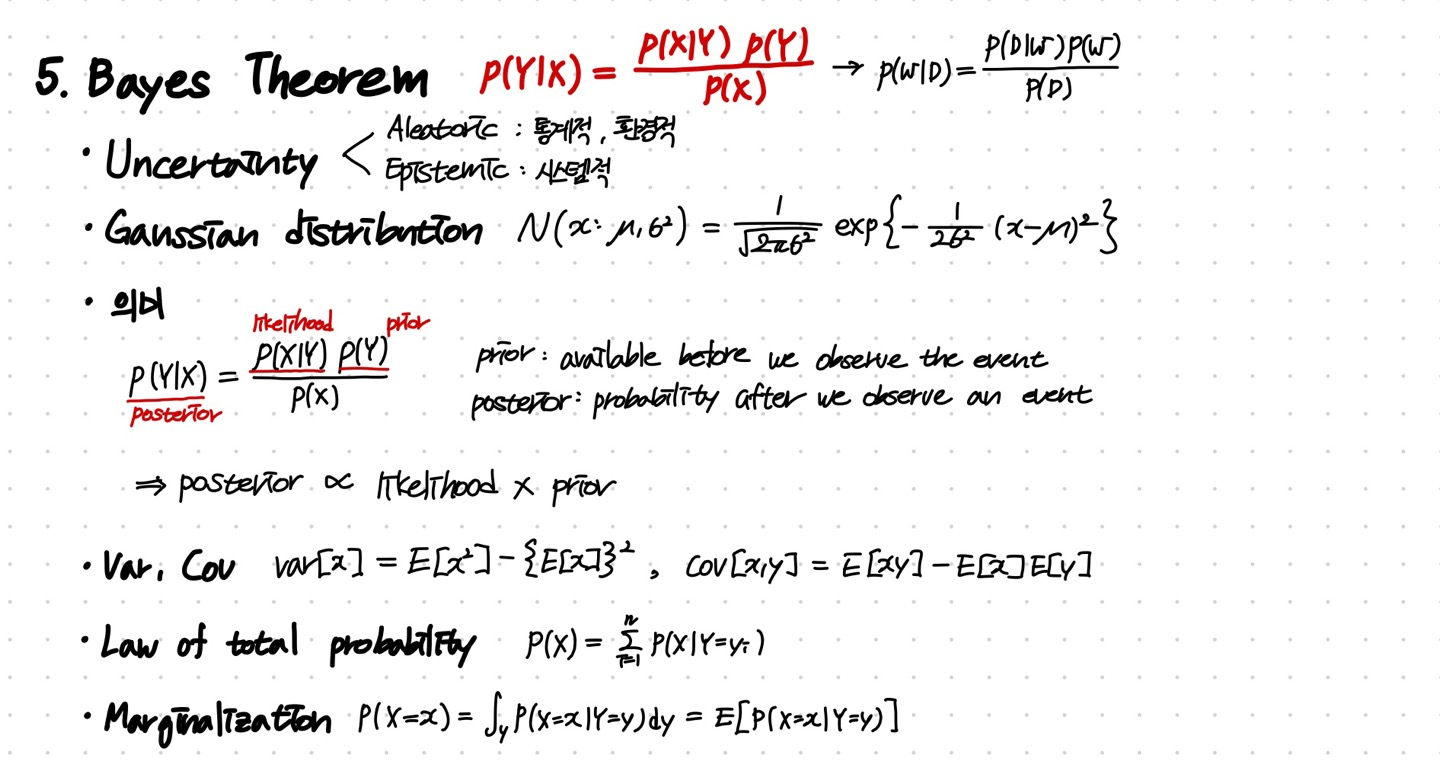 5. Bayes Theorem p(Y|X) = p(X|Y) p(Y) / p(X) → p(w|D) = p(D|w)p(w) / p(D)
• Uncertainty < Aleatoric : 통계적, 환경적
Epistemic : 시스템적
• Gaussian distribution N(x: μ, σ²) = 1 / √2πσ² exp{- 1 / 2σ² (x-μ)²}
• 의미
likelihood prior
p(Y|X) = p(X|Y) p(Y) / p(X)
posterior
prior : available before we observe the event
posterior : probability after we observe an event
⇒ posterior ∝ likelihood × prior
• Var, Cov var[x] = E[x²] - {E[x]}², cov[x,y] = E[xy] - E[x]E[y]
• Law of total probability P(X) = Σⁿᵢ₌₁ P(X|Y=yᵢ)
• Marginalization P(X=x) = ∫y P(X=x|Y=y)dy = E[P(X=x|Y=y)]